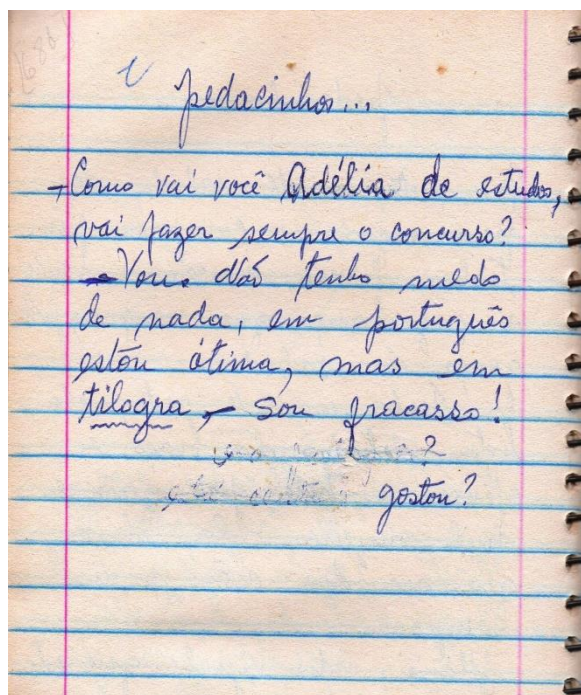 pedacinhos...
- Como vai você Adélia de estudos,
vai fazer sempre o concurso?
- Vou. Não tenho medo
de nada, em português
estou ótima, mas em
tilogra, - Sou fracasso!
?
gostou?